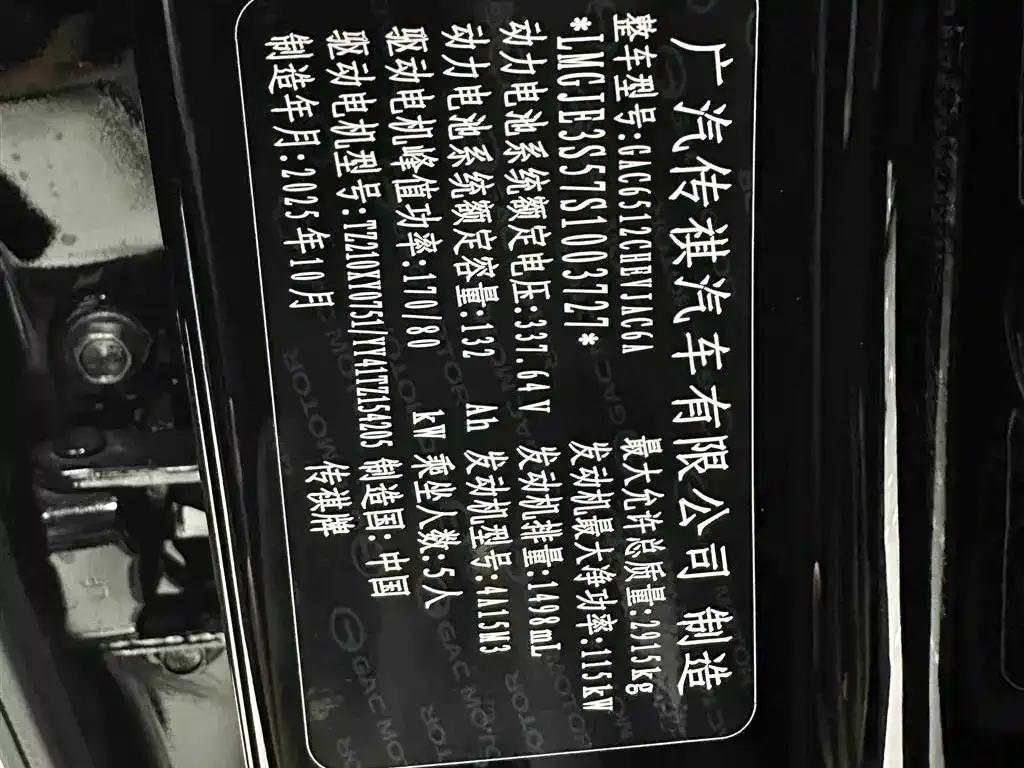 广汽传祺汽车有限公司 制造
整车型号:GAC6512CHEVIAC6A 最大允许总质量:2915kg
*LMGJE3S57S1003727* 发动机最大净功率:115kW
动力电池系统额定电压:337.64V 发动机排量:1498mL
动力电池系统额定容量:132 Ah 发动机型号:4A15M3
驱动电机峰值功率:170/80 kW 乘坐人数:5人
驱动电机型号:TZ210XY0751/YY41TZ154205 制造国:中国
制造年月:2025年10月 传祺牌
GAC MOTOR